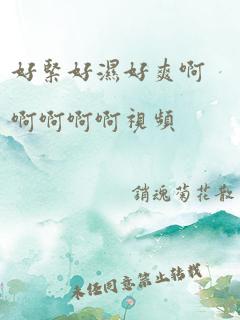 好緊好濕好爽啊
啊啊啊啊視頻
銷魂菊花散
未經同意禁止轉載